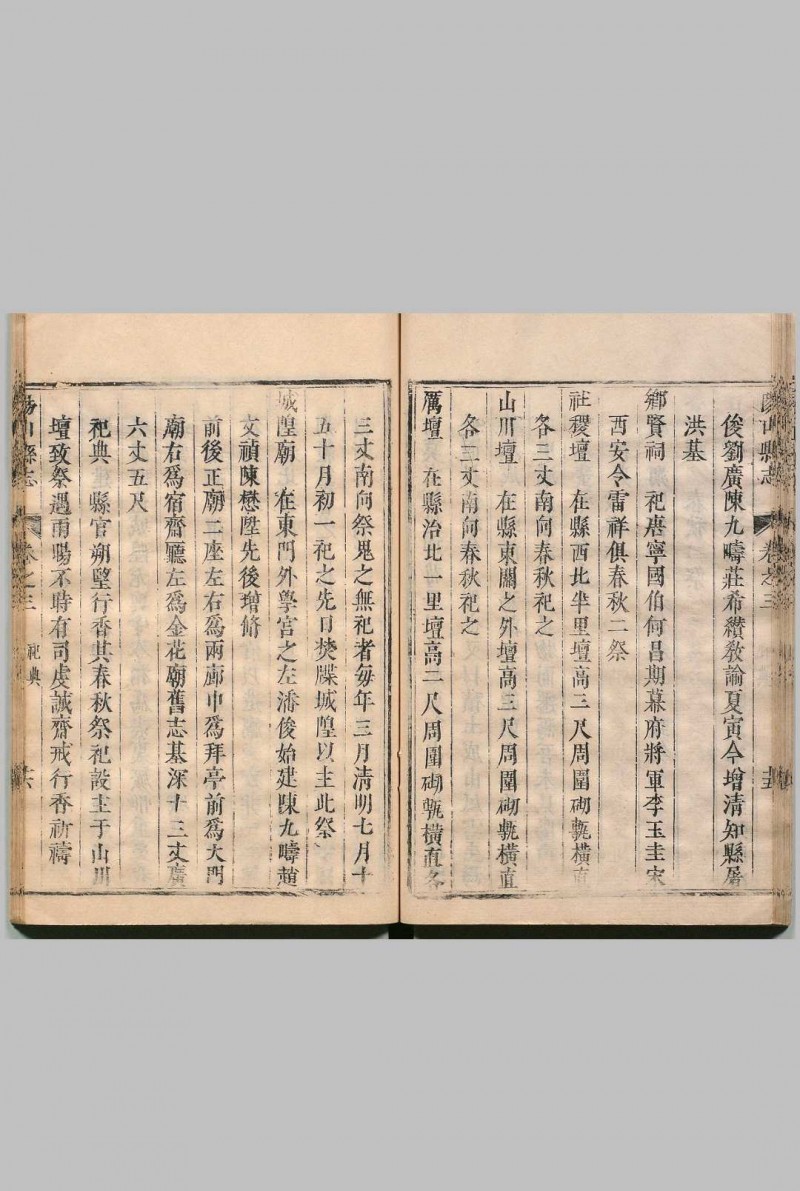 陽山縣志
卷之三
俊劉廣陳九疇莊希纘敎諭夏寅今增淸知縣屠
洪基
鄉賢祠 祀唐寧國伯何昌期幕府將軍李玉圭宋
西安令雷祥俱春秋二祭
社稷壇 在縣西北半里壇高三尺周圍砌甎橫直
各三丈南向春秋祀之
山川壇 在縣東關之外壇高三尺周圍砌甎橫直
各三丈南向春秋祀之
厲壇 在縣治北一里壇高二尺周圍砌甎橫直各
三丈南向祭鬼之無祀者每年三月淸明七月十
五十月初一祀之先日焚牒城隍以主此祭
城隍廟 在東門外學宮之左潘俊始建陳九疇趙
文禎陳懋陞先後增脩
前後正廟二座左右爲兩廊中爲拜亭前爲大門
廟右爲宿齋廳左爲金花廟舊志基深十三丈廣
六丈五尺
祀典 縣官朔朢行香其春秋祭祀設主于山川
壇致祭遇雨暘不時有司虔誠齋戒行香祈禱
陽山縣志
卷之三
祀典